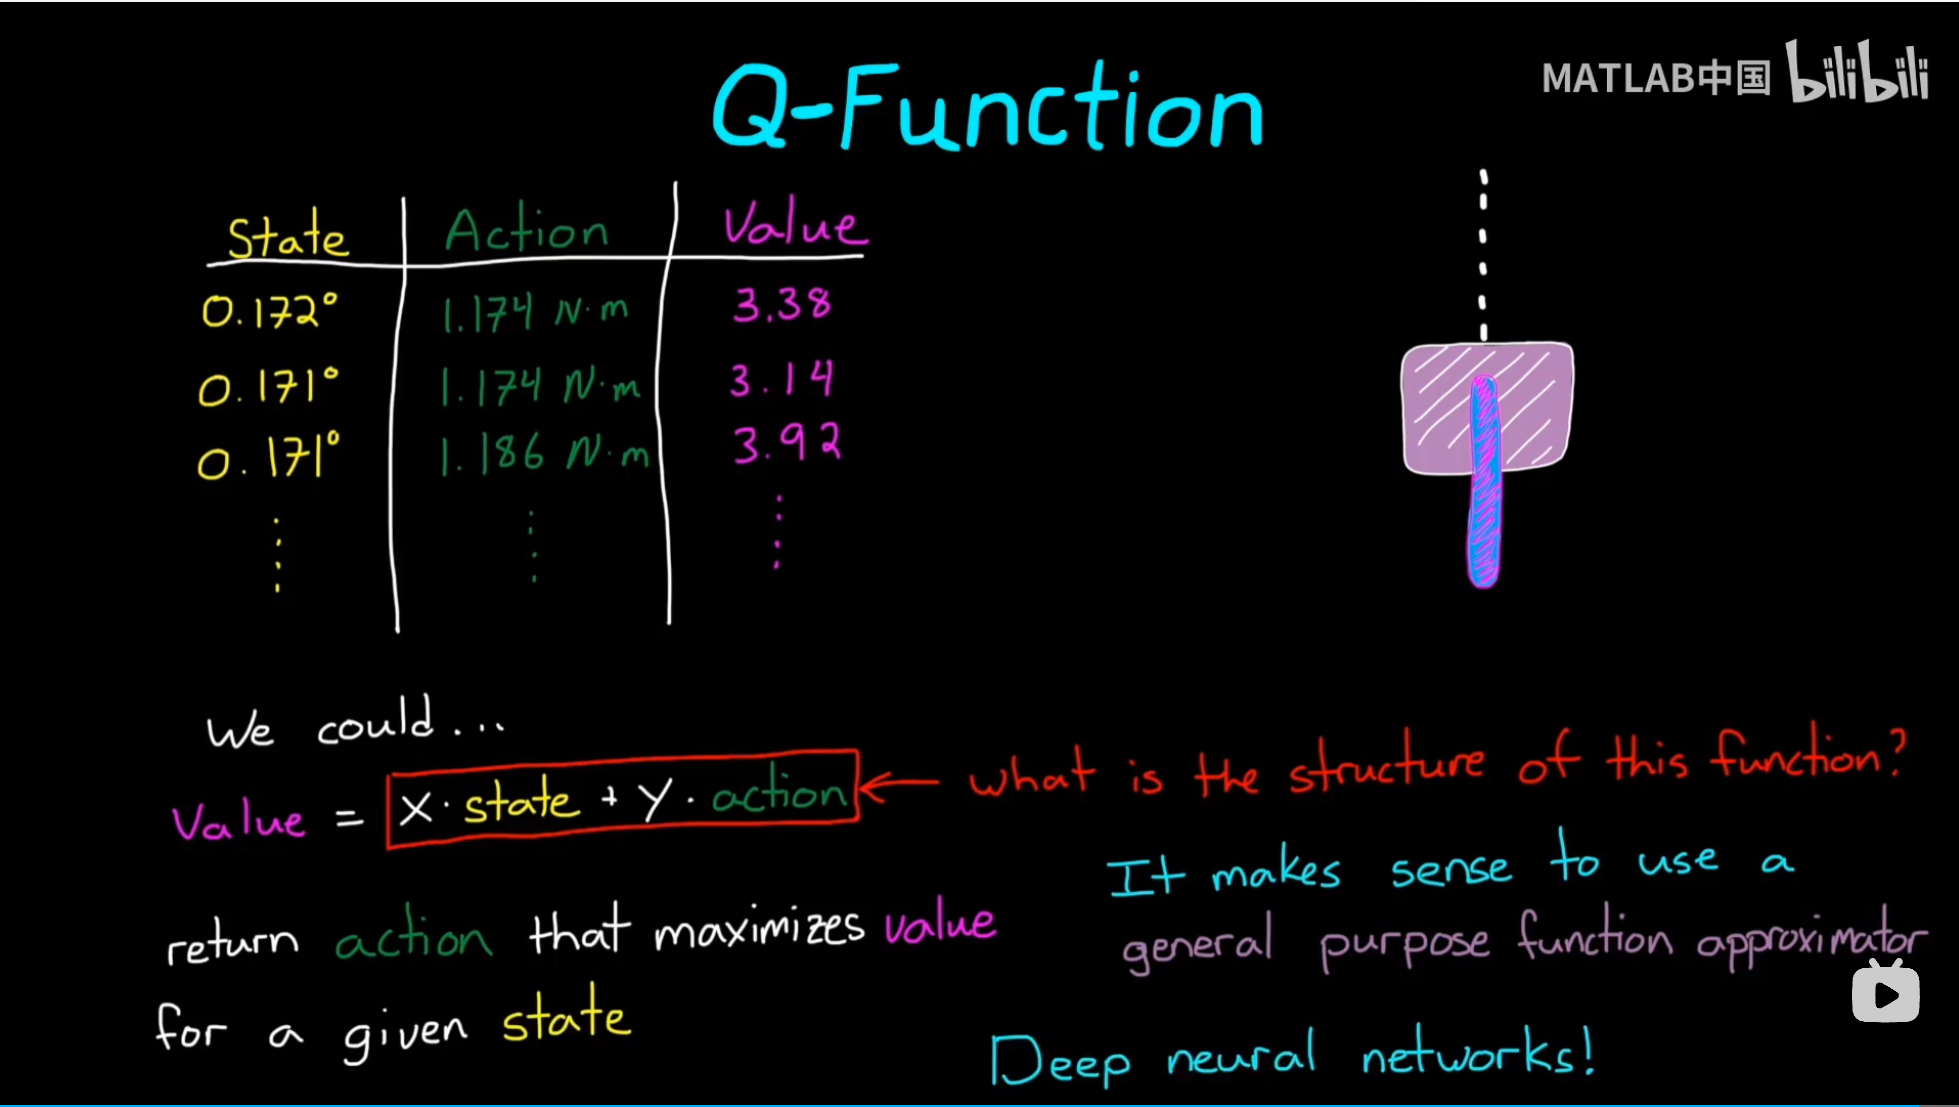 Q-Function
MATLAB中国 bilibili
State Action Value
0.172° 1.174 N·m 3.38
0.171° 1.174 N·m 3.14
0.171° 1.186 N·m 3.92
We could...
Value = X·state + Y·action ← what is the structure of this function?
It makes sense to use a
general purpose function approximator
return action that maximizes value
for a given state
Deep neural networks!